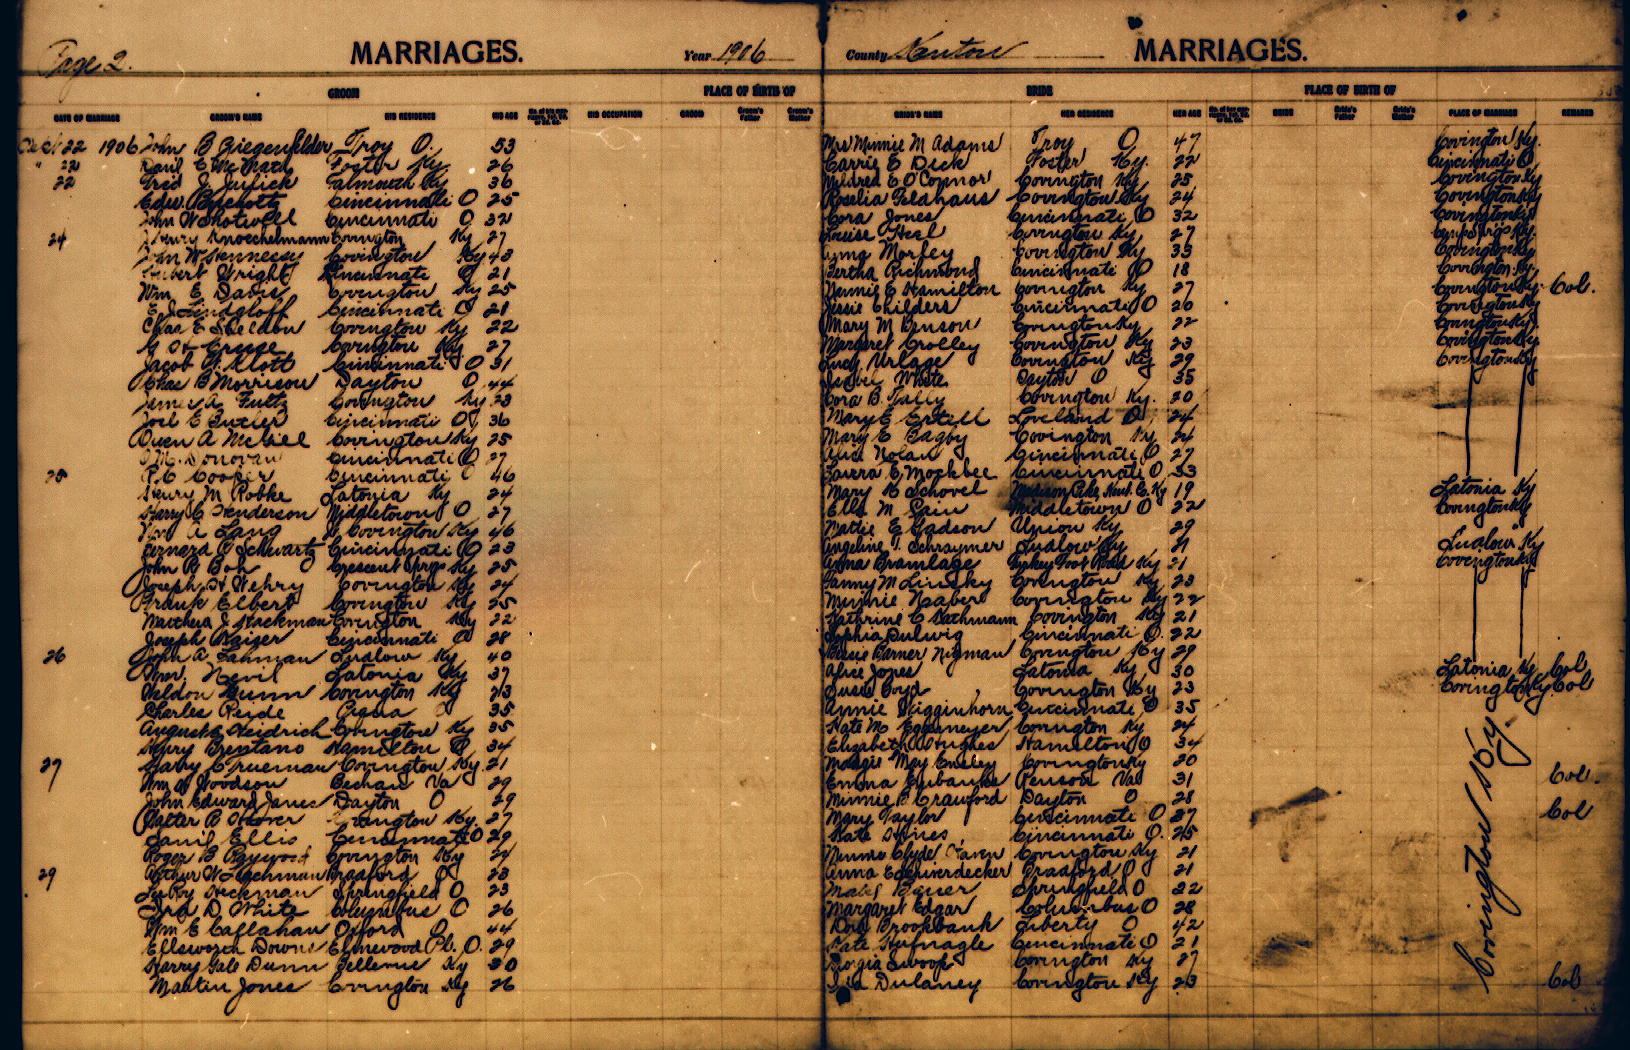 Page 2. MARRIAGES. Year 1906 County Kenton MARRIAGES.
GROOM PLACE OF BIRTH OF BRIDE PLACE OF BIRTH OF
DATE OF MARRIAGE GROOM'S NAME HIS RESIDENCE HIS AGE HIS OCCUPATION GROOM Groom's Father Groom's Mother BRIDE'S NAME HER RESIDENCE HER AGE BRIDE Bride's Father Bride's Mother PLACE OF MARRIAGE REMARKS
22 1906 John B Giegenfelder Troy O. 53 Mrs Minnie M Adams Troy O 47 Covington Ky.
" 22 Foster Ky 26 Carrie E Dick Foster Ky. 22 Cincinnati O
22 Fred J Falmouth Ky 36 Mildred E O'Connor Covington Ky 25 Covington Ky
Edw. Cincinnati O 25 Roselia Felahaus Covington Ky 24 Covington Ky
John W Shotwell Cincinnati O 32 Cora Jones Cincinnati O 32 Covington Ky
24 Henry Knoechelmann Covington Ky 27 Louise Heel Covington Ky 27
John W Hennessy Covington Ky 43 Morley Covington Ky 33 Covington Ky
Hubert Wright Cincinnati O 21 Bertha Richmond Cincinnati O 18 Covington Ky.
Wm E Davis Covington Ky 25 Nannie E Hamilton Covington Ky 27 Covington Ky Col.
E. J. Lindgloff Cincinnati O 21 Jessie Childers Cincinnati O 20 Covington Ky
Chas E Sheldon Covington Ky 22 Mary M Benson Covington Ky 22 Covington Ky
G H Cruse Covington Ky 27 Margaret Crolley Covington Ky 23 Covington Ky
Jacob E. Klott Cincinnati O 31 Lucy Urlage Covington Ky 29 Covington Ky
Chas B Morrison Dayton O 44 Isabel White Dayton O 35
James A Fultz Covington Ky 23 Cora B. Tally Covington Ky. 20
Joel E Butler Cincinnati O 36 Mary E Estell Loveland O 24
Owen A McGill Covington Ky 25 Mary E Bagby Covington Ky 24
Donovan Cincinnati O 27 Alice Nolan Cincinnati O 27
25 P. C Cooper Cincinnati O 46 Laura E Mockbee Cincinnati O 33
Henry M Robke Latonia Ky 24 Mary H Schovel Ky 19 Latonia Ky
Harry C Henderson Middletown O 27 Ella M Spin Middletown O 22 Covington Ky
Wm A Lang Covington Ky 46 Mattie E Gadson Union Ky 29
Bernard C Schwartz Cincinnati O 23 Angeline T. Schraymer Ludlow Ky 21 Ludlow Ky
John H Boh Crescent Sprgs Ky 25 Anna Bramlage Turkey Foot Road Ky 21 Covington Ky
Joseph H Wehry Covington Ky 24 Fanny M Linesky Covington Ky 23
Frank Elbert Covington Ky 25 Minnie Covington Ky 22
Matthew J Stockman Covington Ky 22 Kathrine C Kathmann Covington Ky 21
Joseph Kaiser Cincinnati O 28 Sophia Dulwig Cincinnati O. 22
26 John A Fahman Ludlow Ky 40 Bessie Barner Nieman Covington Ky 29
Wm. Nevil Latonia Ky 37 Alice Jones Latonia Ky 30 Latonia Ky Col
Weldon Gunn Covington Ky 23 Susie Boyd Covington Ky 23 Covington Ky Col
Charles Reide Piqua O 35 Annie Higginhorn Cincinnati O 35
August C Heidrich Covington Ky 35 Kate M. Eggemeyer Covington Ky 24
Henry Brentano Hamilton O 34 Elizabeth Hughes Hamilton O 34
27 Harry C Trueman Covington Ky 21 Maggie May Emsley Covington Ky 20
Wm H Woodson Va 29 Emma Eubanks Va 31 Col.
John Edward Janes Dayton O 29 Minnie B Crawford Dayton O 28
Walter B Stover Covington Ky. 27 Mary Taylor Cincinnati O 37 Col
Ellis Cincinnati O 29 Kate Hines Cincinnati O. 25
Roger B Covington Ky 24 Minnie Clyde Covington Ky 21
29 Arthur W Lachman Bradford O 23 Anna E Schwerdecker Bradford O 21
LeRoy Heckman Springfield O 23 Mabel Bauer Springfield O 22
Ira D. White Columbus O 26 Margaret Edgar Columbus O 28
Wm E Callahan Oxford O 44 Brookbank Liberty O 42
Ellsworth Downs Elmwood Pl. O. 29 Kate Hufnagle Cincinnati O 21
Harry Gale Dunn Bellevue Ky 30 Georgia Swoop Covington Ky 27
Martin Jones Covington Ky 26 Dulaney Covington Ky 23 Col
Covington Ky.